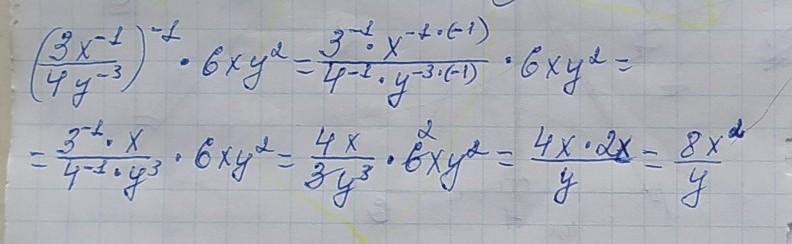 (3x⁻¹/4y⁻³)⁻¹ · 6xy² = 3⁻¹ · x⁻¹·⁽⁻¹⁾/4⁻¹ · y⁻³·⁽⁻¹⁾ · 6xy² =
= 3⁻¹ · x/4⁻¹ · y³ · 6xy² = 4x/3y³ · 6̸²xy² = 4x · 2x/y = 8x²/y